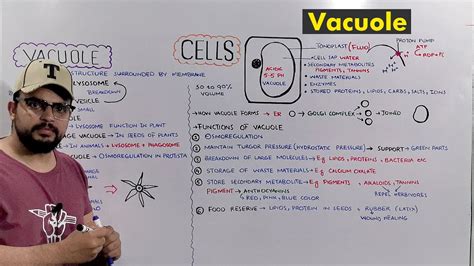 Vacuole
VACUOLE
STRUCTURE SURROUNDED BY MEMBRANE
LYSOSOME
BREAKDOWN
VESICLE
SMALL
LYSOSOME FUNCTION IN PLANT
VACUOLE → IN SEEDS OF PLANTS
IN ANIMALS → LYSOSOME + PHAGOSOME
VACUOLE → OSMOREGULATION IN PROTISTA
T
CELLS
30 TO 90%
VOLUME
ACIDIC
5.5 PH
VACUOLE
TONOPLAST (FLUID)
CELL SAP WATER
SECONDARY METABOLITES
PIGMENTS, TANNINS
WASTE MATERIALS
ENZYMES
STORED PROTEINS, LIPIDS, CARBS, SALTS, IONS
PROTON PUMP
ATP
ADP+Pi
HOW VACUOLE FORMS → ER → GOLGI COMPLEX → JOINED
FUNCTIONS OF VACUOLE
① OSMOREGULATION
② MAINTAIN TURGOR PRESSURE (HYDROSTATIC PRESSURE) → SUPPORT → GREEN PARTS
③ BREAKDOWN OF LARGE MOLECULES → Eg LIPIDS, PROTEINS, BACTERIA etc
④ STORAGE OF WASTE MATERIALS → Eg CALCIUM OXALATE
⑤ STORE SECONDARY METABOLITE → Eg PIGMENTS, ALKALOIDS, TANNINS
PIGMENT → ANTHOCYANINS
RED, PINK, BLUE COLOR
REPEL HERBIVORES
⑥ FOOD RESERVE → LIPIDS, PROTEIN IN SEEDS + RUBBER (LATIX)
WOUND HEALING